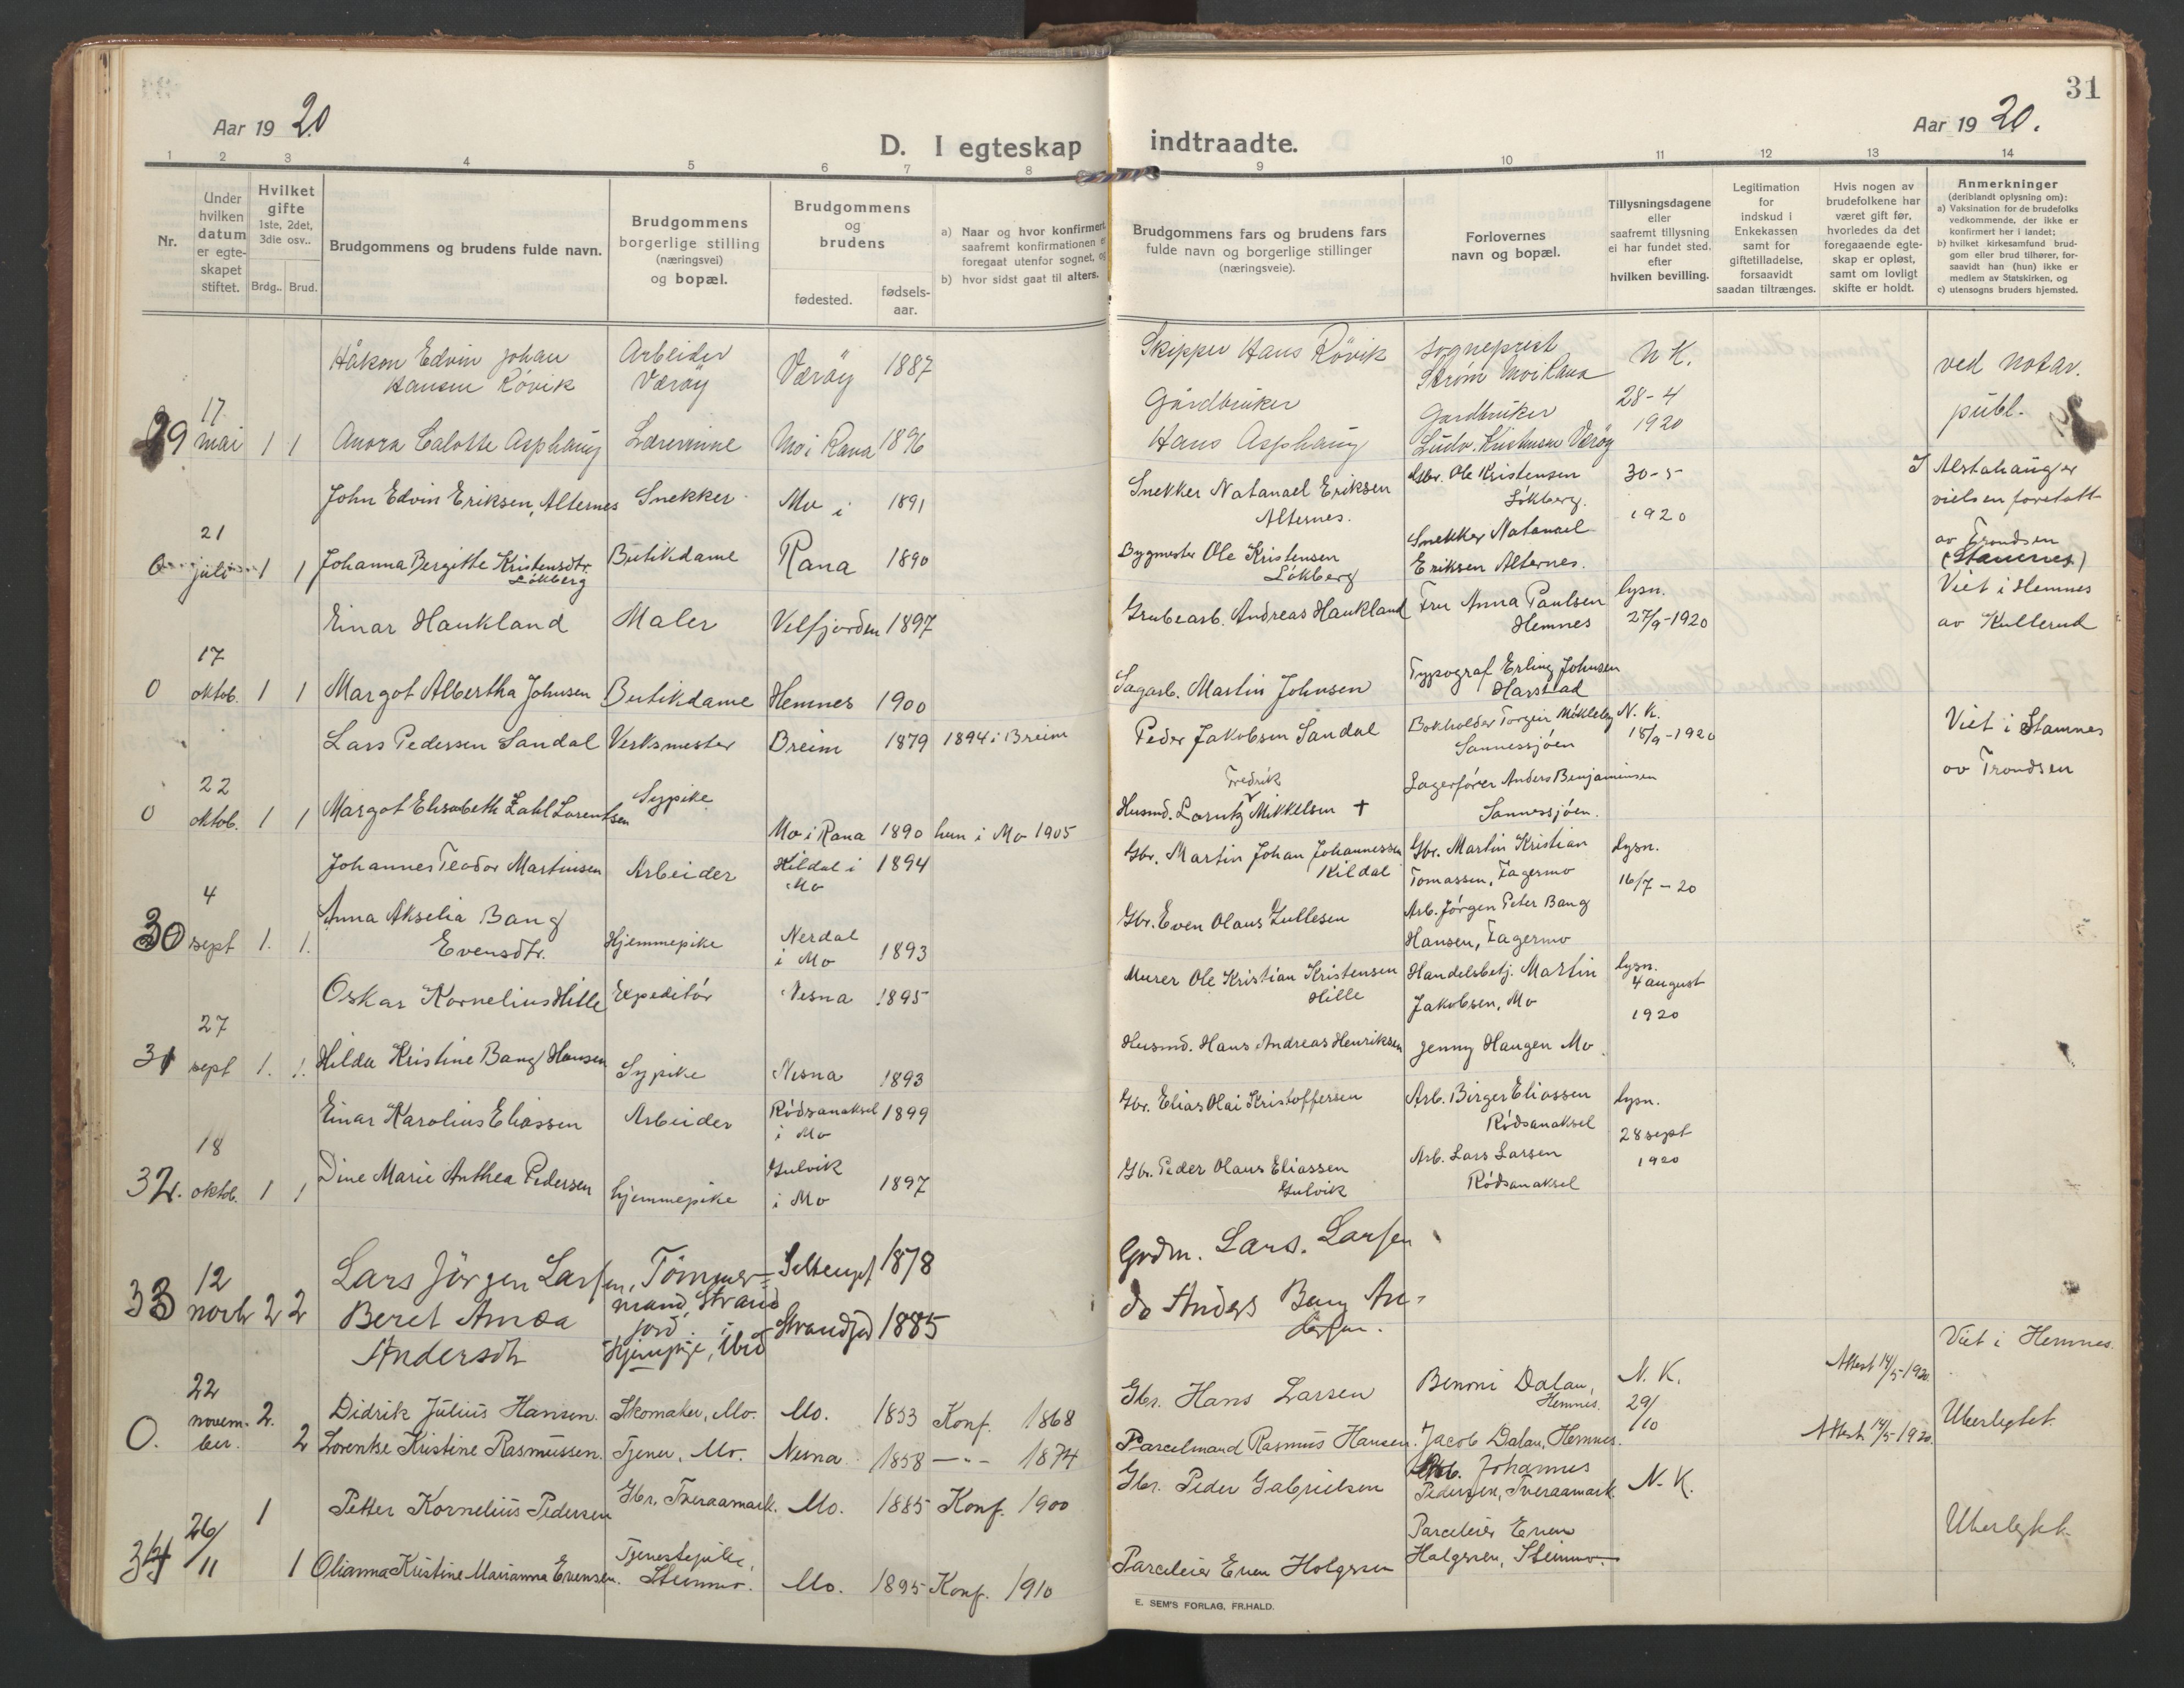 31
Aar 1920
D. I egteskap indtraadte.
Aar 1920.
1 2 3 4 5 6 7 8 9 10 11 12 13 14
Nr.
Under hvilken datum er egteskapet stiftet.
Hvilket gifte 1ste, 2det, 3die osv..
Brdg.. Brud.
Brudgommens og brudens fulde navn.
Brudgommens borgerlige stilling (næringsvei) og bopæl.
Brudgommens og brudens
fødested.
fødsels-aar.
a) Naar og hvor konfirmert saafremt konfirmationen er foregaat utenfor sognet, og
b) hvor sidst gaat til alters.
Brudgommens fars og brudens fars fulde navn og borgerlige stillinger (næringsveie).
Forlovernes navn og bopæl.
Tillysningsdagene eller saafremt tillysning ei har fundet sted. efter hvilken bevilling.
Legitimation for indskud i Enkekassen samt for giftetilladelse, forsaavidt saadan tiltrænges.
Hvis nogen av brudefolkene har været gift før, hvorledes da det foregaaende egteskap er opløst, samt om lovligt skifte er holdt.
Anmerkninger (deriblandt oplysning om):
a) Vaksination for de brudefolks vedkommende, der ikke er konfirmert her i landet;
b) hvilket kirkesamfund brudgom eller brud tilhører, forsaavidt han (hun) ikke er medlem av Statskirken, og
c) utensogns bruders hjemsted.
Håkon Edvin Johan Hansen Rövik Arbeider Væröy Væröy 1887 Skipper Hans Rövik Sogneprest Strøm Mo i Rana N.K. ved notar. publ.
29 17 mai 1 1 Anora Calotte Asphaug Lærerinne Mo i Rana 1896 Gårdbruker Hans Asphaug Gardbruker Ludv. Kristensen Væröy 28-4 1920
John Edvin Eriksen, Alternes Snekker Mo i 1891 Snekker Natanael Eriksen Alternes. Gbr. Ole Kristensen Lökberg. 30-5 1920 I Alstahaug er vielsen foretatt av Trondsen (Stamnes)
0 21 juli 1 1 Johanna Bergitte Kristensdtr. Lökberg Butikdame Rana 1890 Bygmester Ole Kristensen Lökberg Snekker Natanael Eriksen Alternes.
Einar Haukland Maler Velfjorden 1897 Grubearb. Andreas Haukland Fru Anna Paulsen Hemnes lysn. 27/9-1920 Viet i Hemnes av Kullerud
0 17 oktob. 1 1 Margot Albertha Johnsen Butikdame Hemnes 1900 Sagarb. Martin Johnsen Typograf Erling Johnsen Harstad
Lars Pedersen Sandal Verksmester Breim 1879 1894 i Breim Peder Jakobsen Sandal Bokholder Torgeir Mökleby Sannessjöen N.K. 18/9-1920 Viet i Stamnes av Trondsen
0 22 oktob. 1 1 Margot Elisabeth Zahl Lorentsen Sypike Mo i Rana 1890 hun i Mo 1905 Husmd. Lorntz Fredrik Mikkelsen † Lagerförer Anders Benjaminsen Sannessjöen.
Johannes Teodor Martinsen Arbeider Kildal i Mo 1894 Gbr. Martin Johan Johannessen Kildal Gbr. Martin Kristian Tomassen, Fagermo Lysn. 16/7-20
30 4 sept 1. 1. Anna Akselia Bang Evensdtr. Hjemmepike Nerdal i Mo 1893 Gbr. Even Olaus Zullesen Arb. Jörgen Peter Bang Hansen, Fagermo
Oskar Kornelius Hille Expeditör Nesna 1895 Murer Ole Kristian Kristensen Hille Handelsbetj. Martin Jakobsen, Mo lysn. 4 august 1920
31 27 sept 1. 1. Hilda Kristine Bang Hansen Sypike Nesna 1893 Husmd. Hans Andreas Henriksen Jenny Haugen Mo
Einar Karolius Eliassen Arbeider Rödsanaksel i Mo 1899 Gbr. Elias Olai Kristoffersen Arb. Birger Eliassen Rödsanaksel lysn. 28 sept 1920
32. 18 oktob. 1 1 Dine Marie Anthea Pedersen hjemmepike Gulvik i Mo 1897 Gbr. Peder Olaus Eliassen Gulvik Arb. Lars Larsen Rödsanaksel
33 12 novb 2 2 Lars Jörgen Larsen, Tömmermand, Strandjord 1878 Grdm. Lars. Larsen
Beret Anna Andersdtr Ibid Strandjd 1885 do Anders Bang Andersen.
0. 22 november. 2. Didrik Julius Hansen. Skomaker, Mo. Mo. 1853 Konf. 1868 Gbr. Hans Larsen Benoni Dalan, Hemnes. N.K. 29/10 Attest 14/5-1920. Viet i Hemnes.
2 Lorentse Kristine Rasmussen. Tjener, Mo. Nesna 1858 —"— 1874 Parcelmand Rasmus Hansen. Jacob Dalan, Hemnes. Attest 14/5-1920. Uberlyktet.
34 26/11 1 Petter Kornelius Pedersen Gbr. Tveraamark. Mo. 1885 Konf. 1900 Gbr. Peder Gabrielsen Johannes Pedersen, Tveraamark N.K.
1 Olianna Kristine Marianna Evensen. Tjenestepike, Steinmo. Mo. 1895 Konf. 1910 Parceleier Even Holgersen Parceleier Even Holgersen, Steinmo. Uberlykt
E. SEM'S FORLAG, FR.HALD.